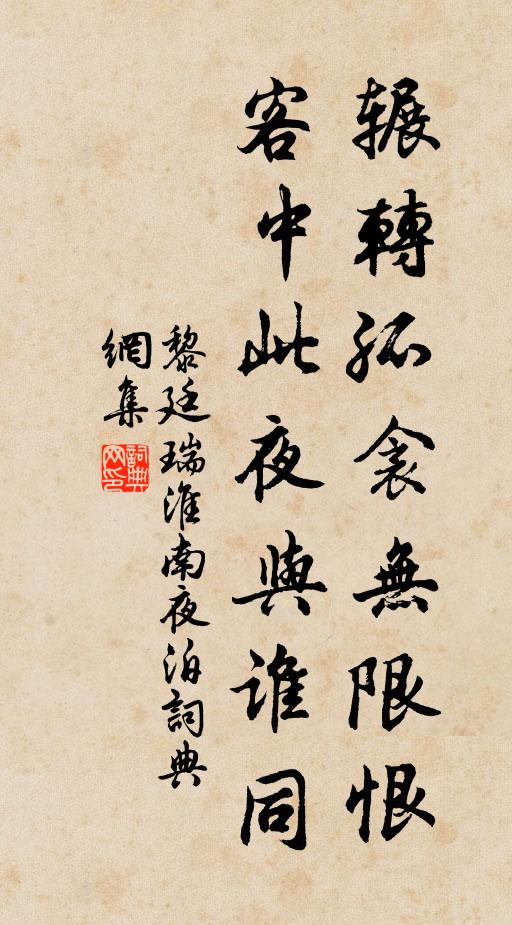 輾轉孤衾無限恨
客中此夜與誰同
黎廷瑞淮南夜泊詞典
網集
詞典
网印